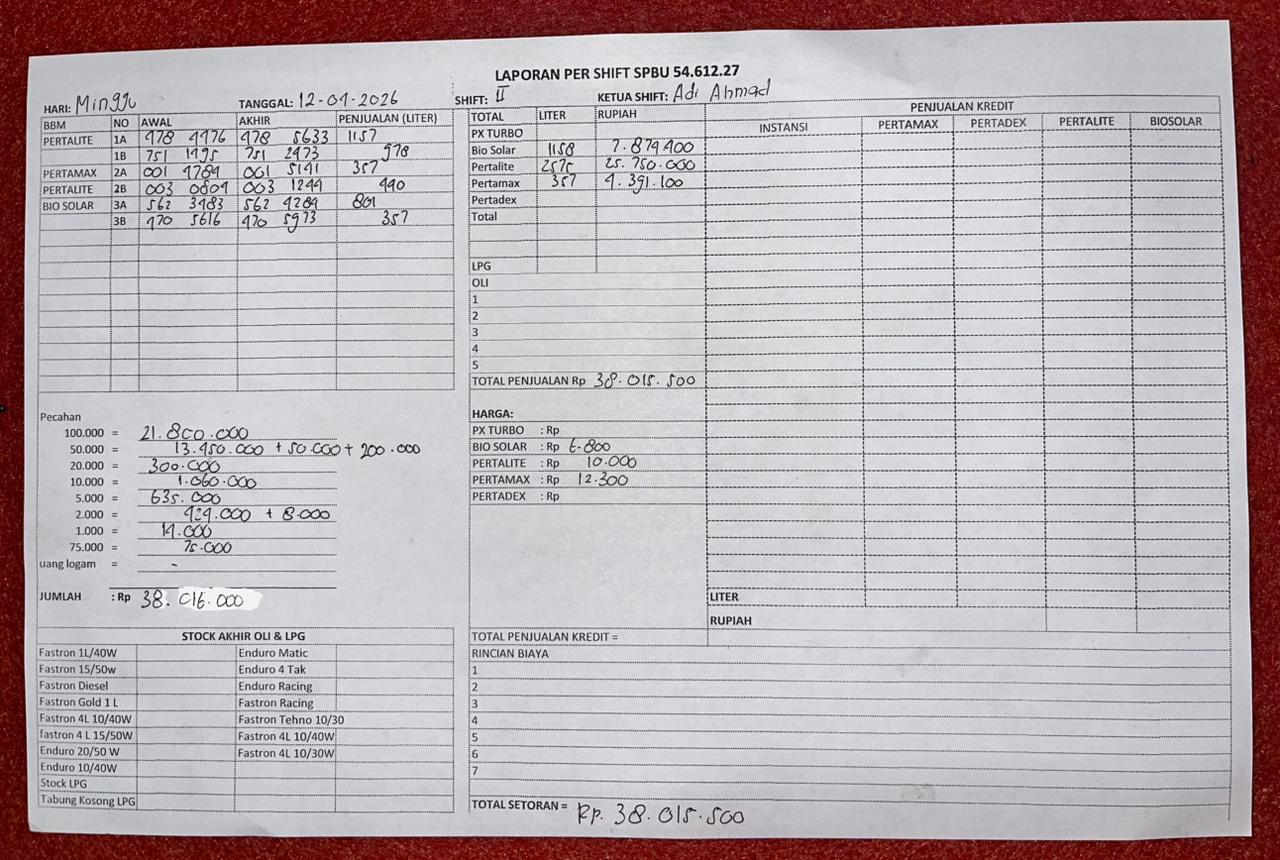 LAPORAN PER SHIFT SPBU 54.612.27
HARI: Minggu TANGGAL: 12-04-2026 SHIFT: II KETUA SHIFT: Adi Ahmad
BBM NO AWAL AKHIR PENJUALAN (LITER)
PERTALITE 1A 478 4476 478 5633 1157
1B 751 1495 751 2473 978
PERTAMAX 2A 001 4784 001 5141 357
PERTALITE 2B 003 0804 003 1244 440
BIO SOLAR 3A 562 3483 562 4284 801
3B 470 5616 470 5973 357
TOTAL LITER RUPIAH
PX TURBO
Bio Solar 1158 7.874.400
Pertalite 2575 25.750.000
Pertamax 357 4.391.100
Pertadex
Total
LPG
OLI
1
2
3
4
5
TOTAL PENJUALAN Rp 38.015.500
PENJUALAN KREDIT
INSTANSI PERTAMAX PERTADEX PERTALITE BIOSOLAR
LITER
RUPIAH
Pecahan
100.000 = 21.800.000
50.000 = 13.450.000 + 50.000 + 200.000
20.000 = 300.000
10.000 = 1.060.000
5.000 = 635.000
2.000 = 424.000 + 8.000
1.000 = 14.000
75.000 = 75.000
uang logam = -
JUMLAH : Rp 38.016.000
HARGA:
PX TURBO : Rp
BIO SOLAR : Rp 6.800
PERTALITE : Rp 10.000
PERTAMAX : Rp 12.300
PERTADEX : Rp
STOCK AKHIR OLI & LPG
Fastron 1L/40W Enduro Matic
Fastron 15/50w Enduro 4 Tak
Fastron Diesel Enduro Racing
Fastron Gold 1 L Fastron Racing
Fastron 4L 10/40W Fastron Tehno 10/30
fastron 4 L 15/50W Fastron 4L 10/40W
Enduro 20/50 W Fastron 4L 10/30W
Enduro 10/40W
Stock LPG
Tabung Kosong LPG
TOTAL PENJUALAN KREDIT =
RINCIAN BIAYA
1
2
3
4
5
6
7
TOTAL SETORAN = Rp. 38.015.500